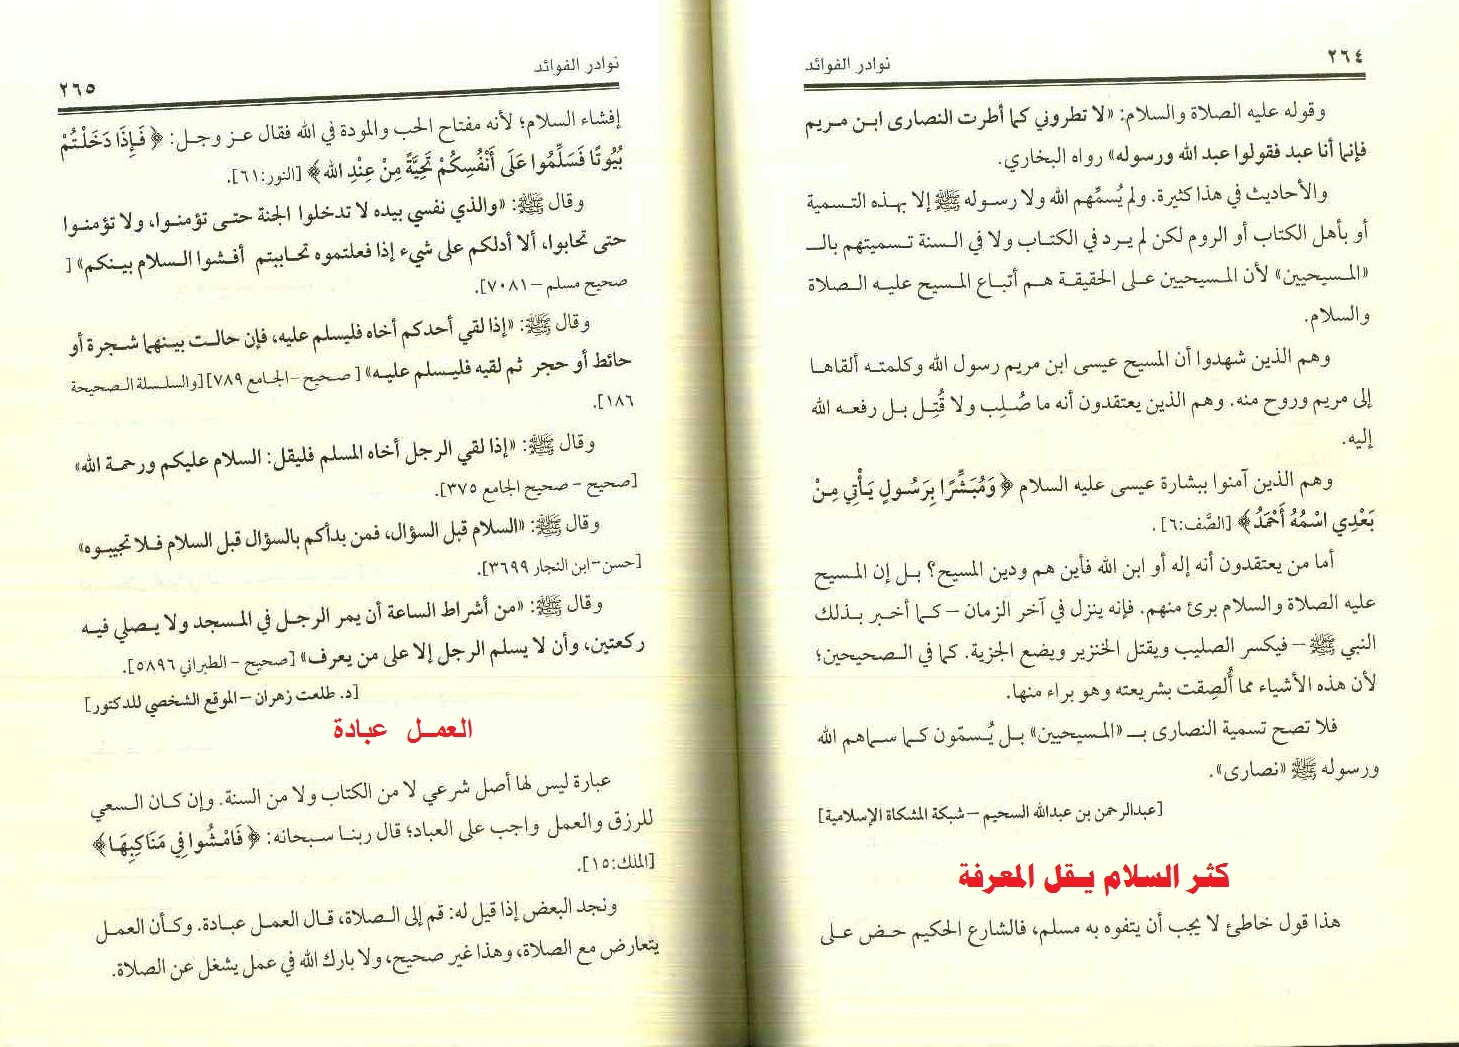 ٢٦٤
نوادر الفوائد
وقوله عليه الصلاة والسلام: «لا تطروني كما أطرت النصارى ابن مريم
فإنما أنا عبد فقولوا عبد الله ورسوله» رواه البخاري.
والأحاديث في هذا كثيرة. ولم يُسمِّهم الله ولا رسوله ﷺ إلا بهذه التسمية
أو بأهل الكتاب أو الروم لكن لم يرد في الكتاب ولا في السنة تسميتهم بالـ
«المسيحيين» لأن المسيحيين على الحقيقة هم أتباع المسيح عليه الصلاة
والسلام.
وهم الذين شهدوا أن المسيح عيسى ابن مريم رسول الله وكلمته ألقاها
إلى مريم وروح منه. وهم الذين يعتقدون أنه ما صُلِب ولا قُتِل بل رفعه الله
إليه.
وهم الذين آمنوا ببشارة عيسى عليه السلام ﴿وَمُبَشِّرًا بِرَسُولٍ يَأْتِي مِنْ
بَعْدِي اسْمُهُ أَحْمَدُ﴾ [الصَّف:٦].
أما من يعتقدون أنه إله أو ابن الله فأين هم ودين المسيح؟ بل إن المسيح
عليه الصلاة والسلام برئ منهم. فإنه ينزل في آخر الزمان – كما أخبر بذلك
النبي ﷺ – فيكسر الصليب ويقتل الخنزير ويضع الجزية. كما في الصحيحين؛
لأن هذه الأشياء مما أُلصِقت بشريعته وهو براء منها.
فلا تصح تسمية النصارى بـ «المسيحيين» بل يُسمّون كما سماهم الله
ورسوله ﷺ «نصارى».
[عبدالرحمن بن عبدالله السحيم – شبكة المشكاة الإسلامية]
كثر السلام يقل المعرفة
هذا قول خاطئ لا يجب أن يتفوه به مسلم، فالشارع الحكيم حض على
نوادر الفوائد
٢٦٥
إفشاء السلام؛ لأنه مفتاح الحب والمودة في الله فقال عز وجل: ﴿فَإِذَا دَخَلْتُمْ
بُيُوتًا فَسَلِّمُوا عَلَى أَنْفُسِكُمْ تَحِيَّةً مِنْ عِنْدِ الله﴾ [النور:٦١].
وقال ﷺ: «والذي نفسي بيده لا تدخلوا الجنة حتى تؤمنوا، ولا تؤمنوا
حتى تحابوا، ألا أدلكم على شيء إذا فعلتموه تحاببتم أفشوا السلام بينكم» [
صحيح مسلم – ٧٠٨١].
وقال ﷺ: «إذا لقي أحدكم أخاه فليسلم عليه، فإن حالت بينهما شجرة أو
حائط أو حجر ثم لقيه فليسلم عليه» [صحيح – الجامع ٧٨٩] [والسلسلة الصحيحة
١٨٦].
وقال ﷺ: «إذا لقي الرجل أخاه المسلم فليقل: السلام عليكم ورحمة الله»
[صحيح – صحيح الجامع ٣٧٥].
وقال ﷺ: «السلام قبل السؤال، فمن بدأكم بالسؤال قبل السلام فلا تجيبوه»
[حسن – ابن النجار ٣٦٩٩].
وقال ﷺ: «من أشراط الساعة أن يمر الرجل في المسجد ولا يصلي فيه
ركعتين، وأن لا يسلم الرجل إلا على من يعرف» [صحيح – الطبراني ٥٨٩٦].
[د. طلعت زهران – الموقع الشخصي للدكتور]
العمل عبادة
عبارة ليس لها أصل شرعي لا من الكتاب ولا من السنة. وإن كان السعي
للرزق والعمل واجب على العباد؛ قال ربنا سبحانه: ﴿فَامْشُوا فِي مَنَاكِبِهَا﴾
[الملك:١٥].
ونجد البعض إذا قيل له: قم إلى الصلاة، قال العمل عبادة. وكأن العمل
يتعارض مع الصلاة، وهذا غير صحيح، ولا بارك الله في عمل يشغل عن الصلاة.